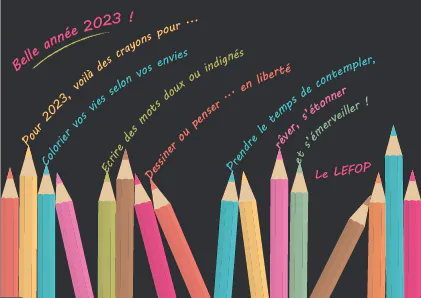 Belle année 2023 !
Pour 2023, voilà des crayons pour ...
Colorier vos vies selon vos envies
Ecrire des mots doux ou indignés
Dessiner ou penser ... en liberté
Prendre le temps de contempler,
rêver, s'étonner
et s'émerveiller !
Le LEFOP